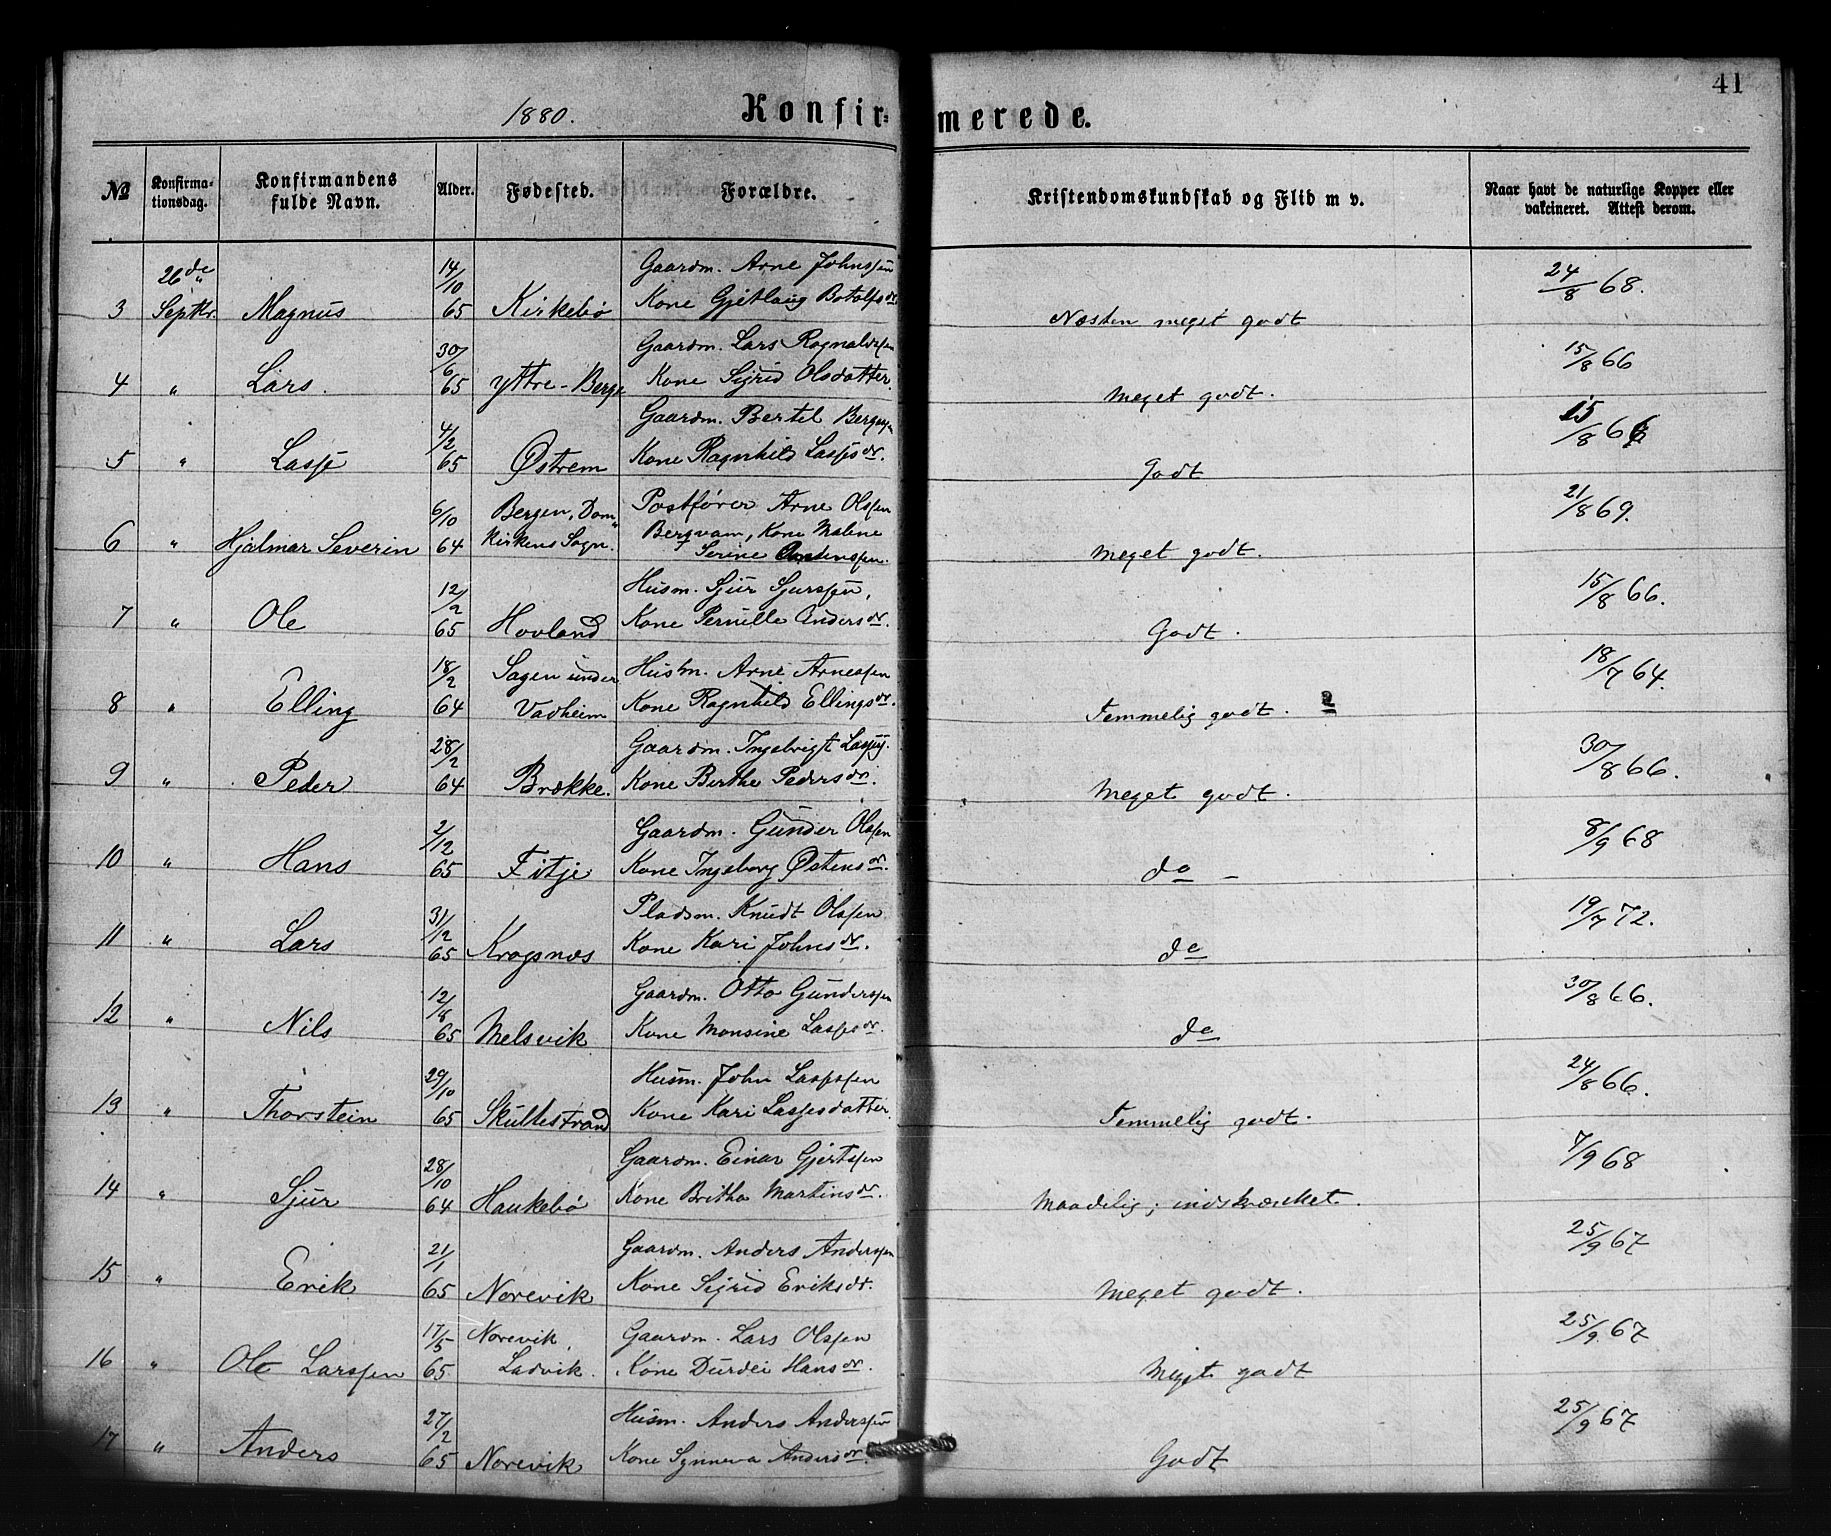 41
1880. Konfir= merede.
№ Konfirma-tionsdag. Konfirmandens fulde Navn. Alder. Fødested. Forældre. Kristendomskundskab og Flid m v. Naar havt de naturlige Kopper eller vakcineret. Attest derom.
26de 14/10 Gaardm. Arne Johnssen 24/8 68.
3 Septbr. Magnus 65 Kirkebø Kone Gjetlaug Botolfsdr Næsten meget godt
30/6 Gaardm. Lars Ragnaldsen 15/8 66
4 " Lars. 65 Yttre-Berge Kone Sigrid Olsdatter. Meget godt.
4/2 Gaardm. Bertel 15/8 66
5 " Lasse 65 Østrem Kone Ragnhild Lassesdr. Godt
6/10 Bergen, Dom" Postfører Arne Olssen 21/8 69.
6 " Hjalmar Severin 64 kirkens Sogn. Bergvam, Kone Malene Meget godt.
Serine
12/2 Husm. Sjur Sjurssen, 15/8 66.
7 " Ole 65 Hovland Kone Pernille Andersdr. Godt.
18/2 Sagen under Husm. Arne Arnessen 18/7 64.
8 " Elling 64 Vadheim Kone Ragnhild Ellingsdr. Temmelig godt.
28/2 Gaardm. Ingebrigt Lasses. 30/8 66.
9 " Peder 64 Brække. Kone Berthe Pedersdr. Meget godt.
2/12 Gaardm. Gunder Olssen 8/9 68
10 " Hans 65 Fitje Kone Ingeborg Østensdr. do –
31/12 Pladsm. Knudt Olssen 19/7 72.
11 " Lars 65 Krogsnæs Kone Kari Johnsdr. do
12/8 Gaardm. Otto Gunderssen 30/8 66.
12 " Nils 65 Melsvik Kone Monsine Lassesdr. do
29/10 Husm. John Lassessen 24/8 66.
13 " Thorstein 65 Skullestrand Kone Kari Lassesdatter. Temmelig godt.
28/10 Gaardm. Einar Gjertssen 7/9 68
14 " Sjur 64 Haukebø Kone Britha Martinsdr. Maadelig; indskrænket.
21/1 Gaardm. Anders Anderssen 25/9 67
15 " Erik 65 Norevik Kone Sigrid Eriksdr. Meget godt.
17/5 Norevik, Gaardm. Lars Olssen 25/9. 67
16 " Ole Larssen 65. Ladvik. Kone Durdei Hansdr. Meget godt
27/2 Husm. Anders Anderssen 25/9 67
17 " Anders 65 Norevik Kone Synneva Andersdr. Godt